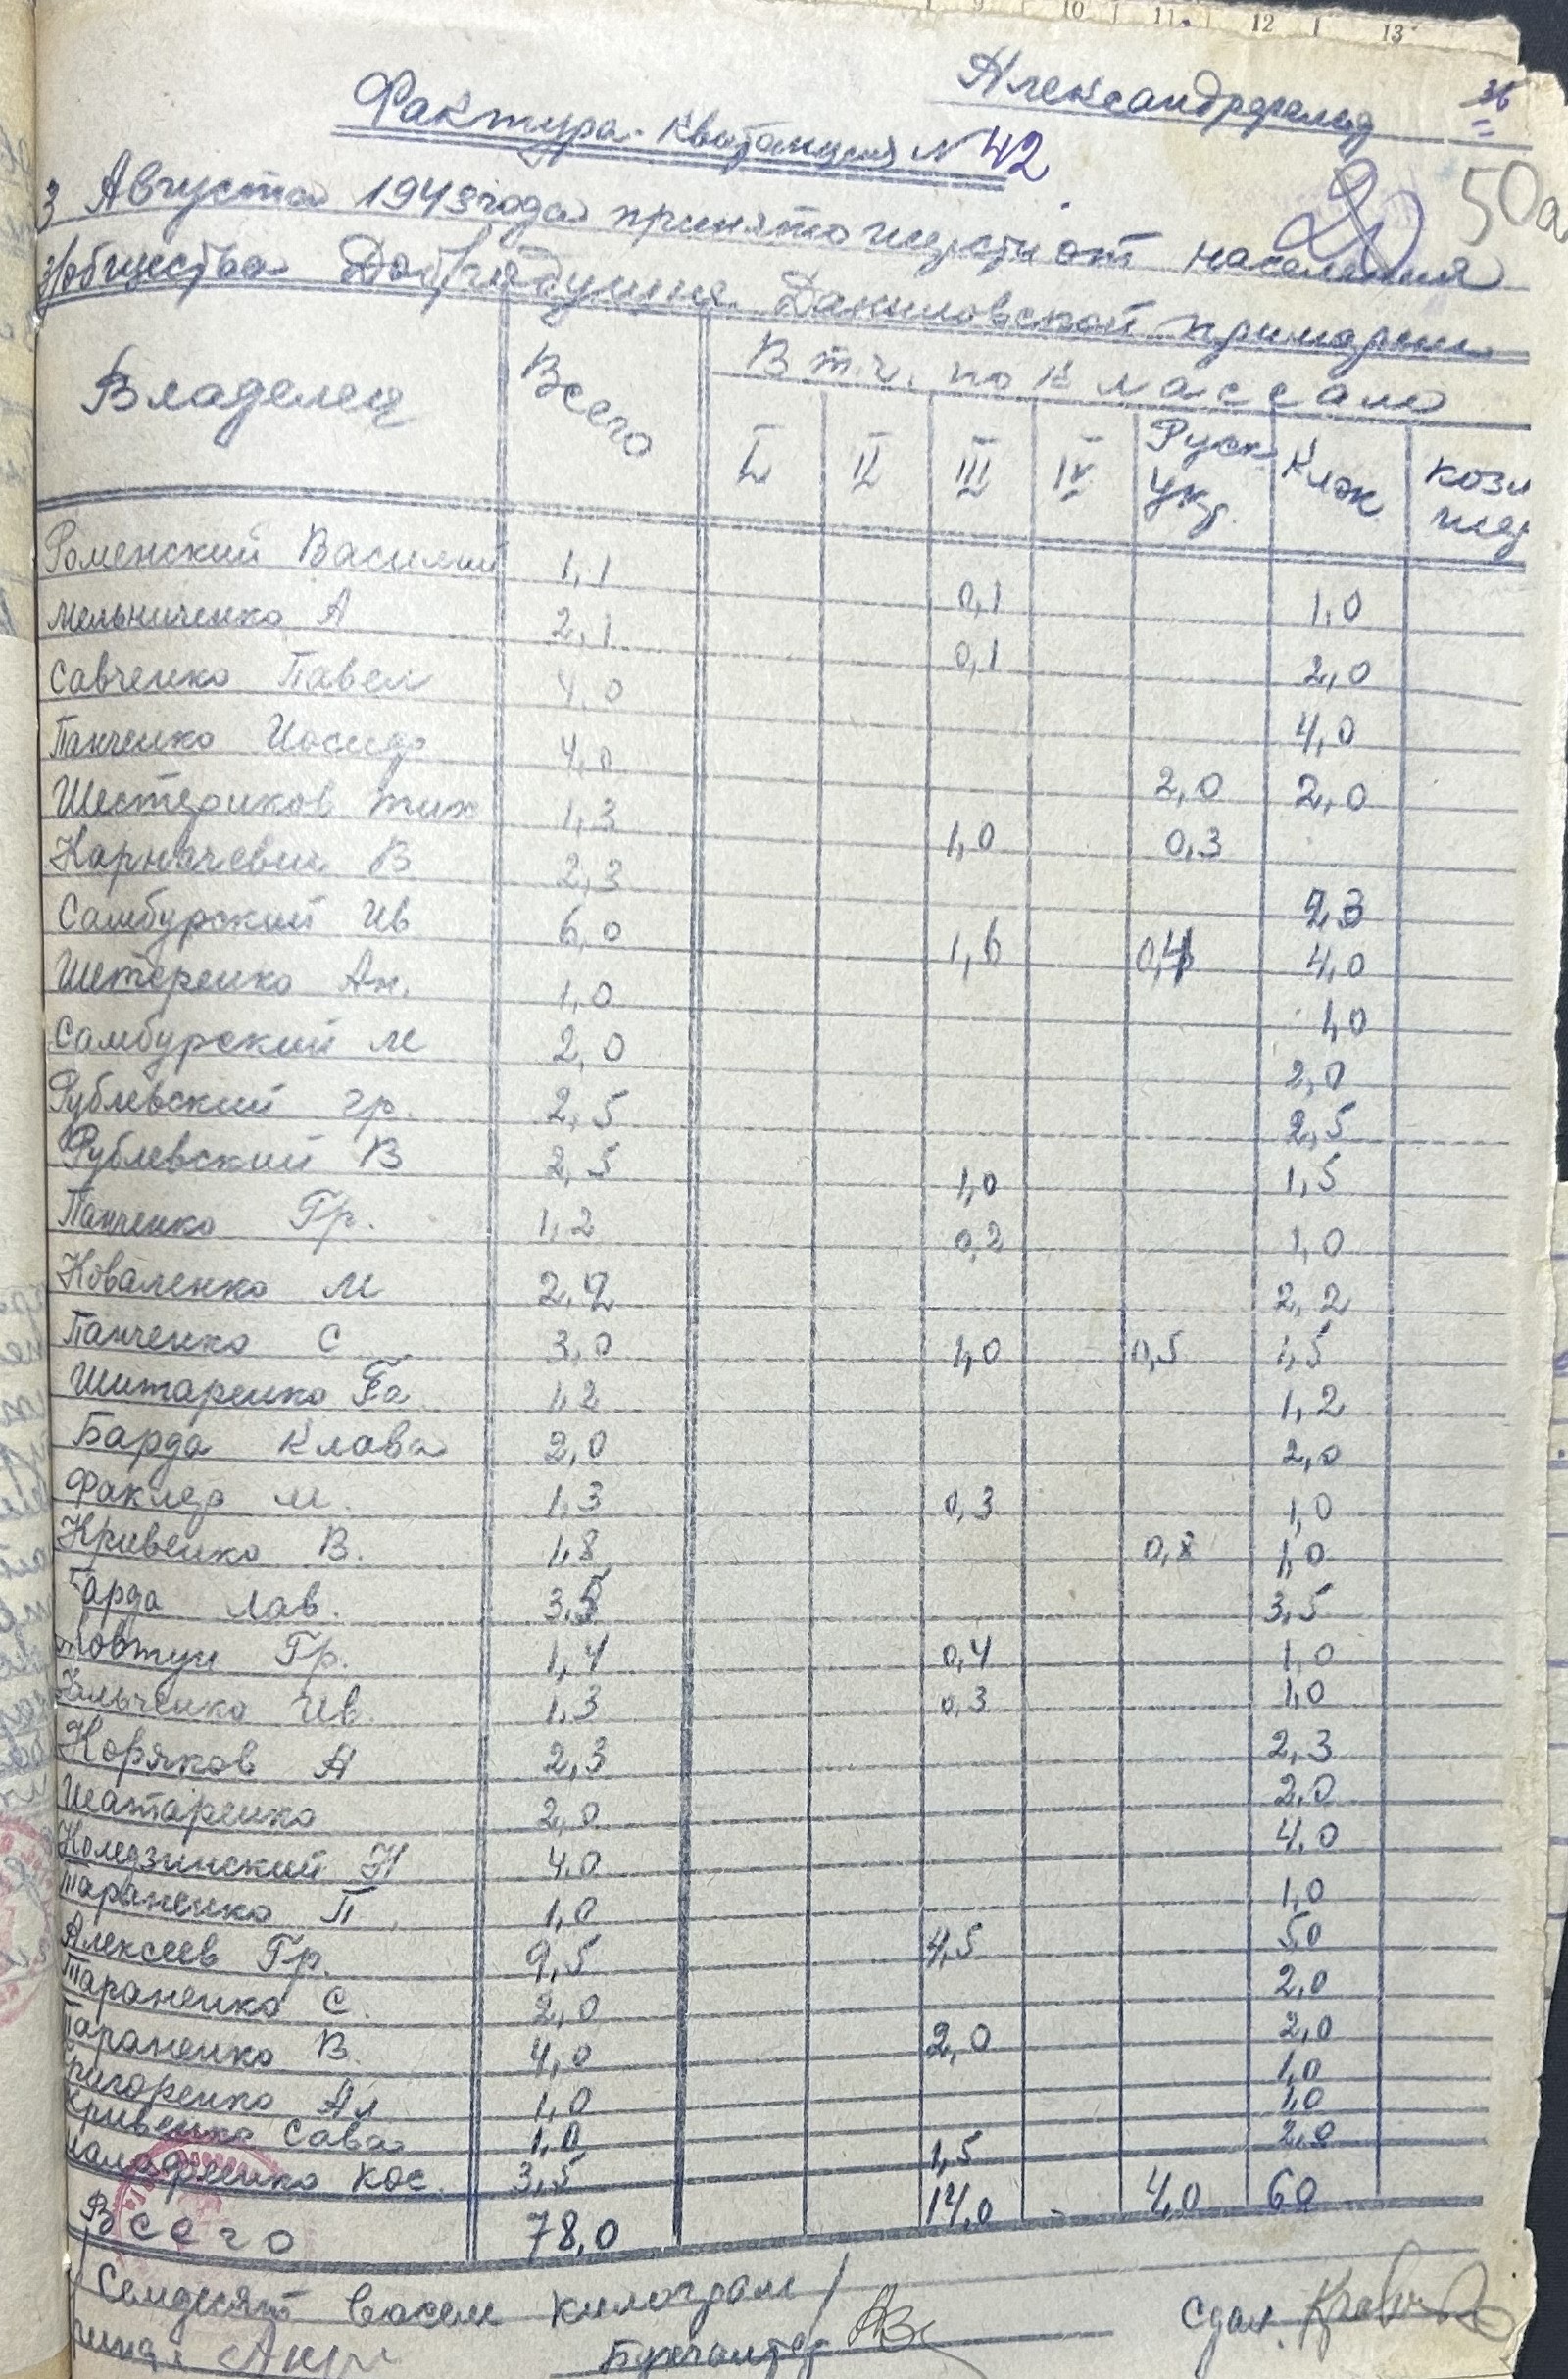 9 10 11 12 13
Александрфельд 36
Фактура-квитанция № 42
50а
3 Августа 1943 года принято шерсти от населения
общества Данииловской примарии
Владелец Всего В т.ч. по классам
I II III IV Руск укр. Клок козл шер
Роменский Василий 1,1 0,1 1,0
Мельниченко А 2,1 0,1 2,0
Савченко Павел 4,0 4,0
Панченко Иосиф 4,0 2,0 2,0
Шестериков тих 1,3 1,0 0,3
Карначевич В 2,3 2,3
Самбурский Ив 6,0 1,6 0,4 4,0
Шетеренко Ан. 1,0 1,0
Самбурский М 2,0 2,0
Рублевский гр. 2,5 2,5
Рублевский В 2,5 1,0 1,5
Панченко Гр. 1,2 0,2 1,0
Коваленко М 2,2 2,2
Панченко С 3,0 1,0 0,5 1,5
Шитаренко 1,2 1,2
Барда Клава 2,0 2,0
Факлер М. 1,3 0,3 1,0
Кривенко В. 1,8 0,8 1,0
Барда Лав. 3,5 3,5
Товтун Гр. 1,4 0,4 1,0
Ив. 1,3 0,3 1,0
Коряков А 2,3 2,3
Шатаренко 2,0 2,0
Н 4,0 4,0
Тараненко П 1,0 1,0
Алексеев Гр. 9,5 4,5 5,0
Тараненко С. 2,0 2,0
Тараненко В. 4,0 2,0 2,0
Григоренко Ал 1,0 1,0
Кривенко Сава 1,0 1,0
Кос. 3,5 1,5 2,0
Всего 78,0 14,0 - 4,0 60
Семдесят восем килограм/
Бухгалтер Сдал